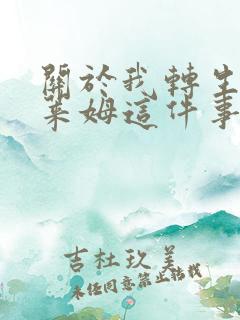 關於我轉生
萊姆這件事
吉杜玖美
未經同意禁止轉載